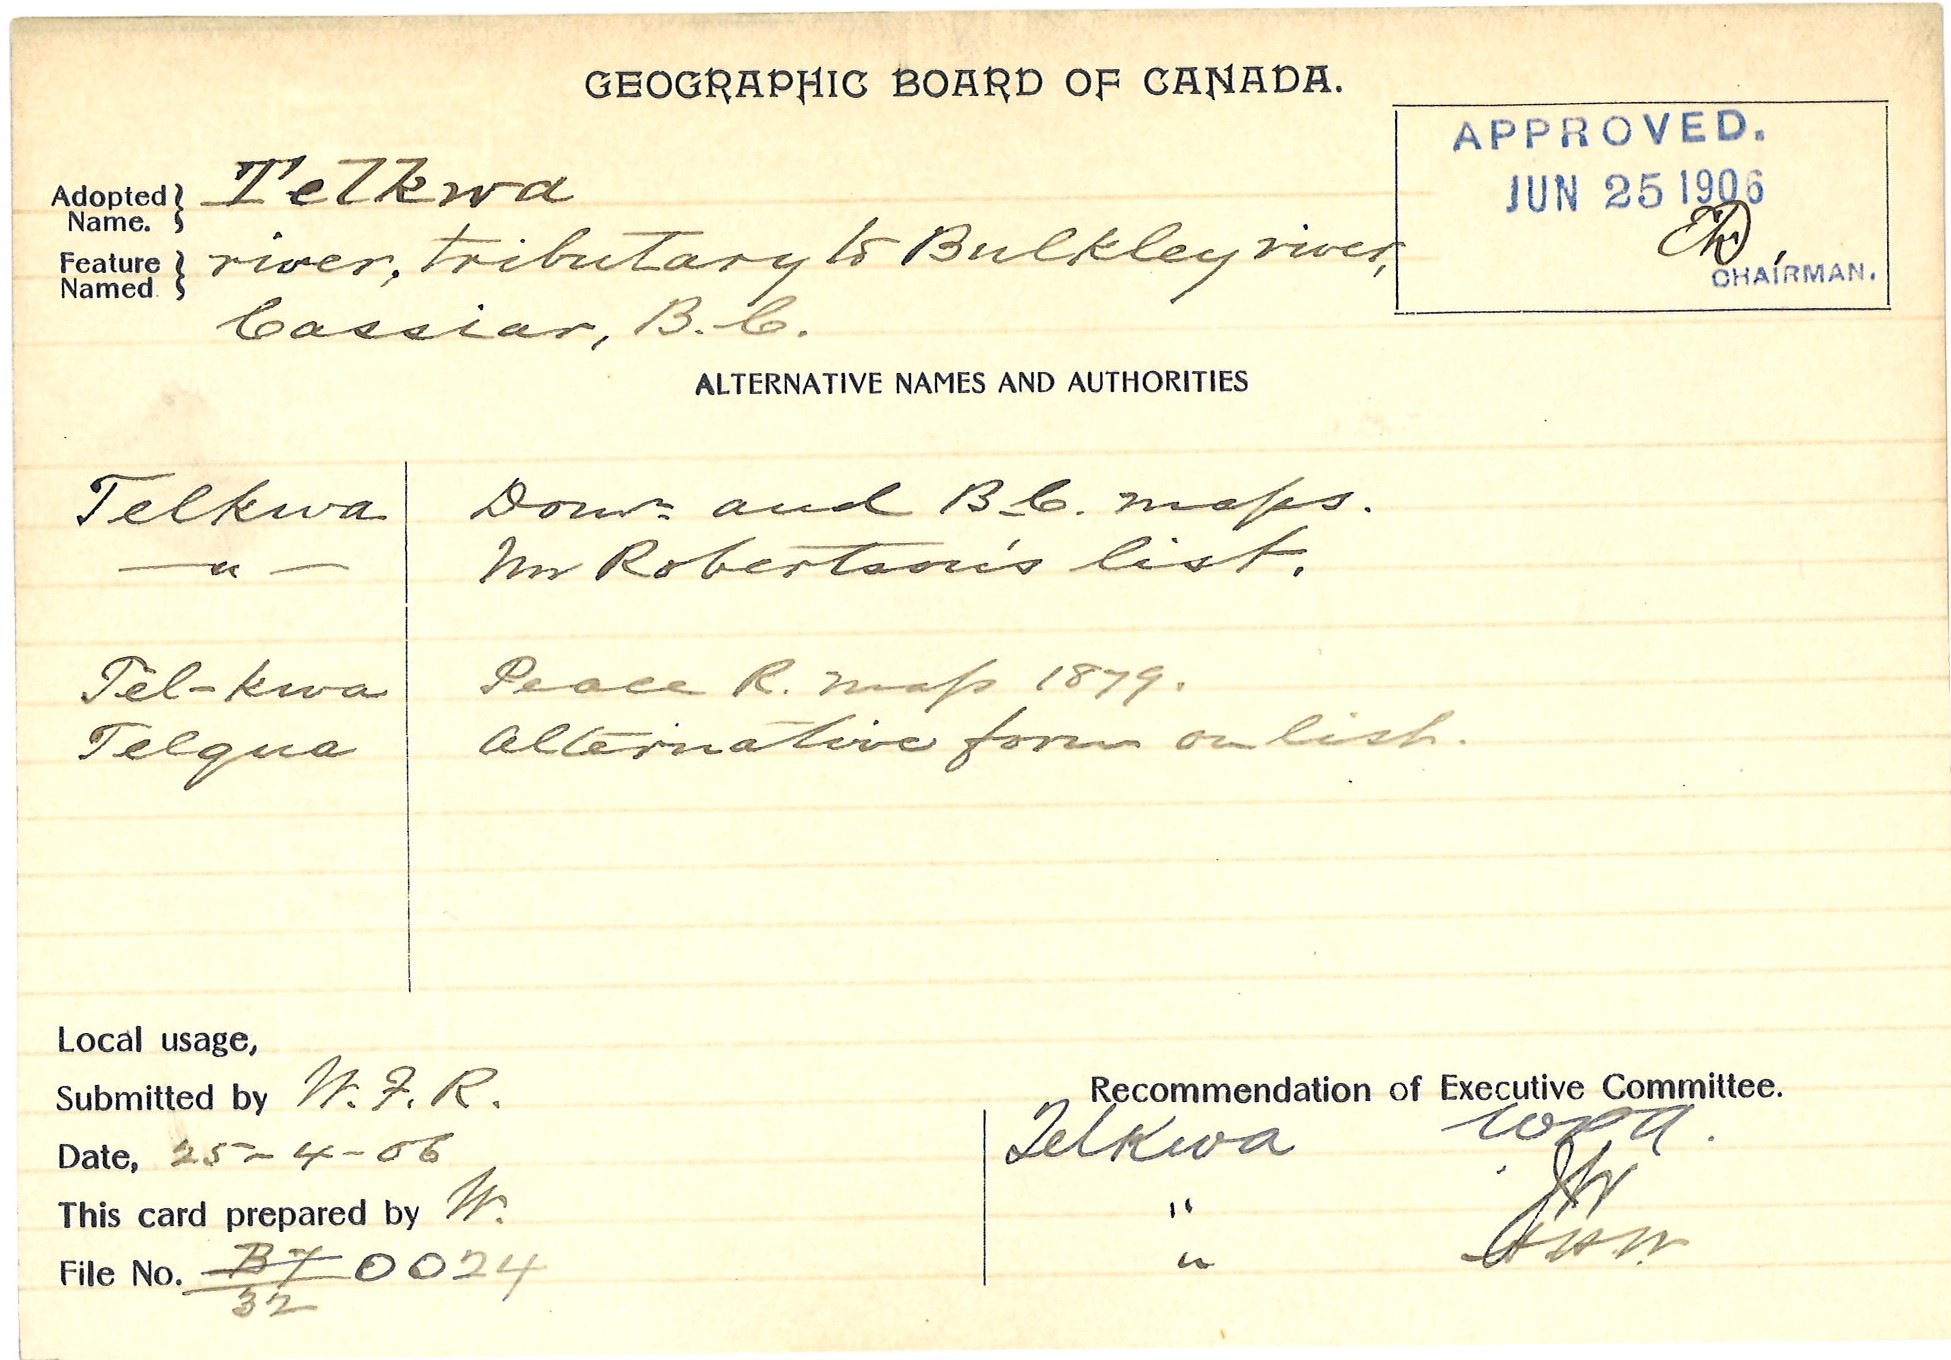 GEOGRAPHIC BOARD OF CANADA.
APPROVED.
JUN 25 1906
CHAIRMAN.
Adopted Name. Telkwa
Feature Named river, tributary to Bulkley river,
Cassiar, B.C.
ALTERNATIVE NAMES AND AUTHORITIES
Telkwa Domn and B.C. maps.
— " — Mr Robertson's list.
Tel-kwa Peace R. map 1879.
Telqua Alternative form on list.
Local usage,
Submitted by W.F.R.
Date, 25-4-06
This card prepared by W.
File No. B7 0024
32
Recommendation of Executive Committee.
Telkwa
"
"